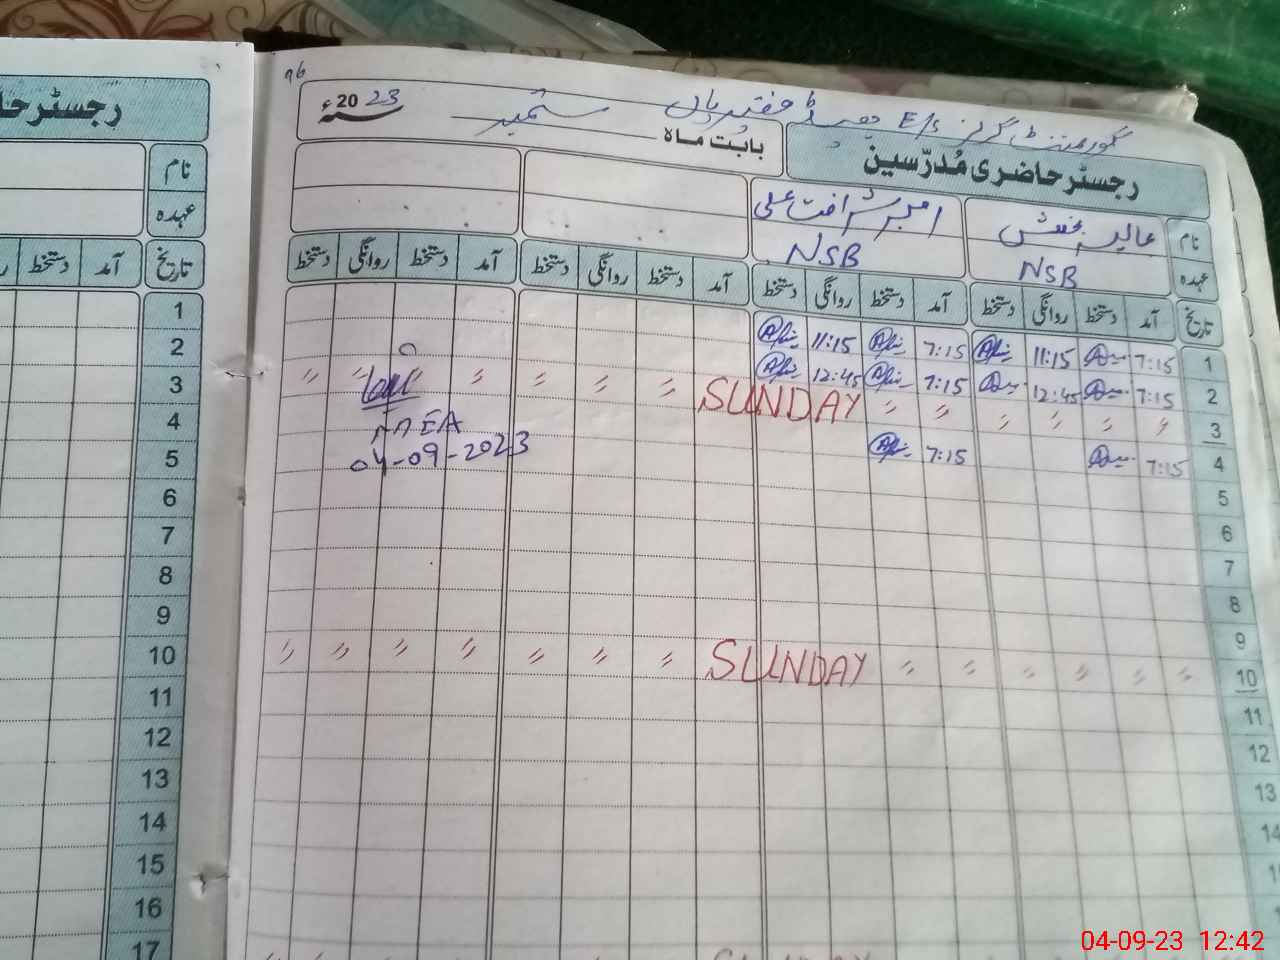 رجسٹر حا
نام
عہدہ
تاریخ آمد دستخط
1
2
3
4
5
6
7
8
9
10
11
12
13
14
15
16
17
گورنمنٹ گرلز E/S
رجسٹر حاضری مُدرّسین بابت ماہ ستمبر سنہ 2023ء
نام عالیہ
عہدہ NSB NSB
تاریخ آمد دستخط روانگی دستخط آمد دستخط روانگی دستخط آمد دستخط روانگی دستخط آمد دستخط روانگی دستخط
1 7:15 11:15 7:15 11:15
2 7:15 12:45 7:15 12:45
3 〃 〃 〃 〃 〃 〃 SUNDAY 〃 〃 〃 〃 〃 〃 〃
4 7:15 7:15
04-09-2023
5
6
7
8
9
10 〃 〃 〃 〃 〃 〃 SUNDAY 〃 〃 〃 〃 〃 〃 〃
11
12
13
14
04-09-23 12:42